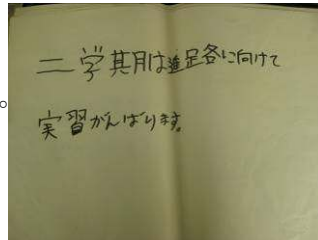 二学期は進路に向けて
実習がんばります。